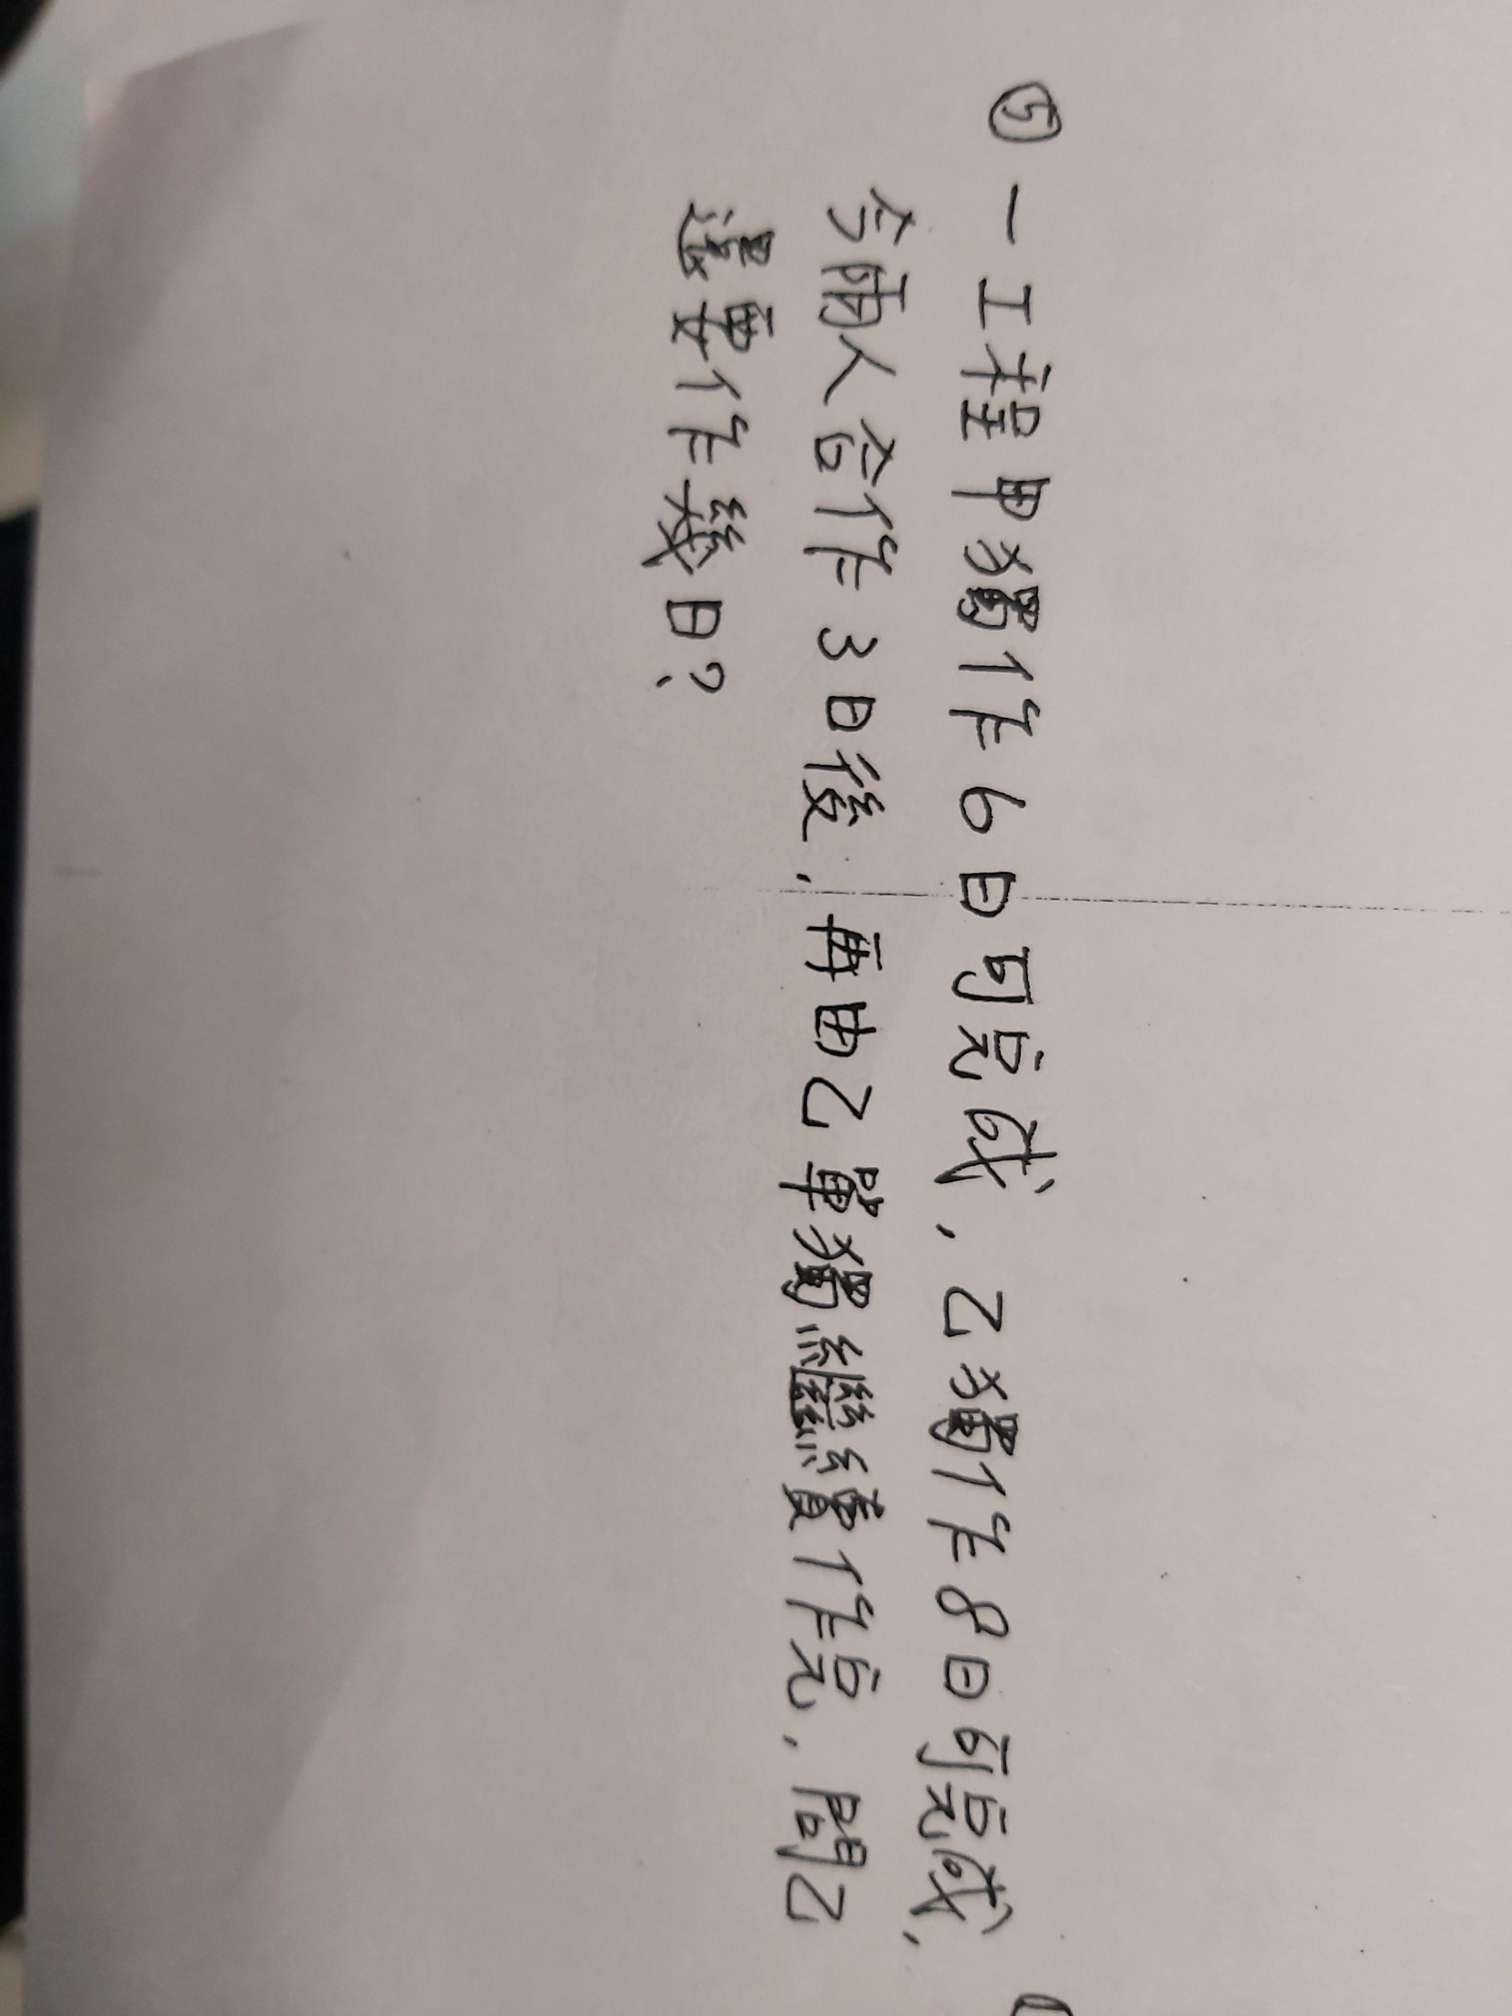 ⑤ 一工程甲獨作6日可完成,乙獨作8日可完成,
今兩人合作3日後,再由乙單獨繼續作完,問乙
還要作幾日?